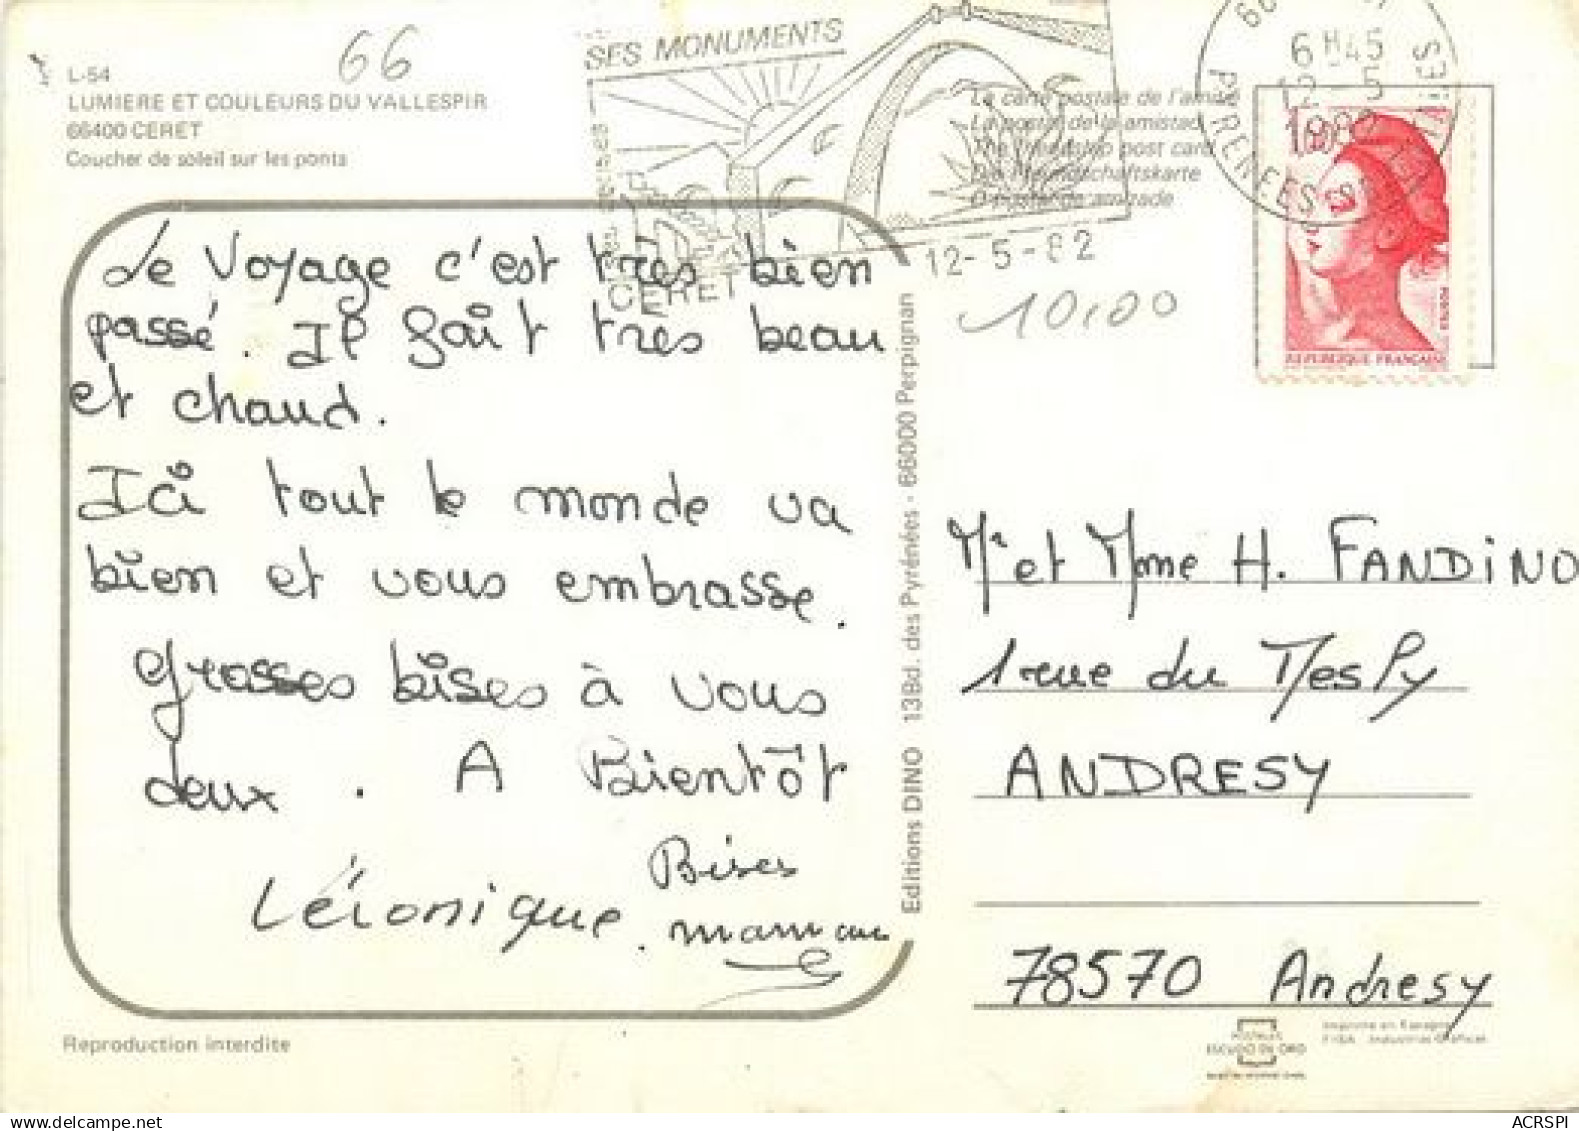 66
L-54
LUMIERE ET COULEURS DU VALLESPIR
66400 CERET
Coucher de soleil sur les ponts
SES MONUMENTS
CERET
12-5-82
6H45
12-5
1982
PYRENEES
La carte postale de l'amitié
La postal de la amistad
The friendship post card
Die Freundschaftskarte
O postal de amizade
REPUBLIQUE FRANÇAISE
POSTES
10,00
Le Voyage c'est très bien
passé. Il fait tres beau
et chaud.
Ici tout le monde va
bien et vous embrasse.
Grosses bises à vous
deux. A Bientôt
Véronique.
Bises
maman
Editions DINO 13Bd. des Pyrénées - 66000 Perpignan
Mr et Mme H. FANDiNO
1 rue du Mesly
ANDRESY
78570 Andresy
Reproduction interdite
ESCUDO DE ORO
ACRSPI